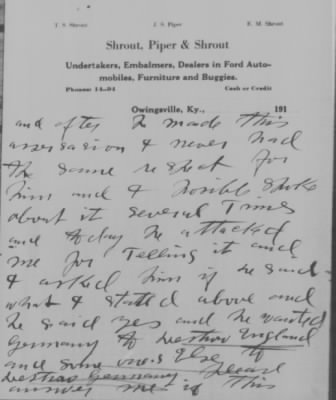 T. S. Shrout J. S. Piper E. M. Shrout
Shrout, Piper & Shrout
Undertakers, Embalmers, Dealers in Ford Auto-
mobiles, Furniture and Buggies.
Phones: 14-94 Cash or Credit
Owingsville, Ky., 191
and after he made this
I never had
the same respect for
him and I
about it several Times
and today he attacked
me for Telling it and
I asked him if he said
what I stated above and
he said yes and he wanted
Germany to destroy England
and some one Else to
destroy Germany
answer me if this